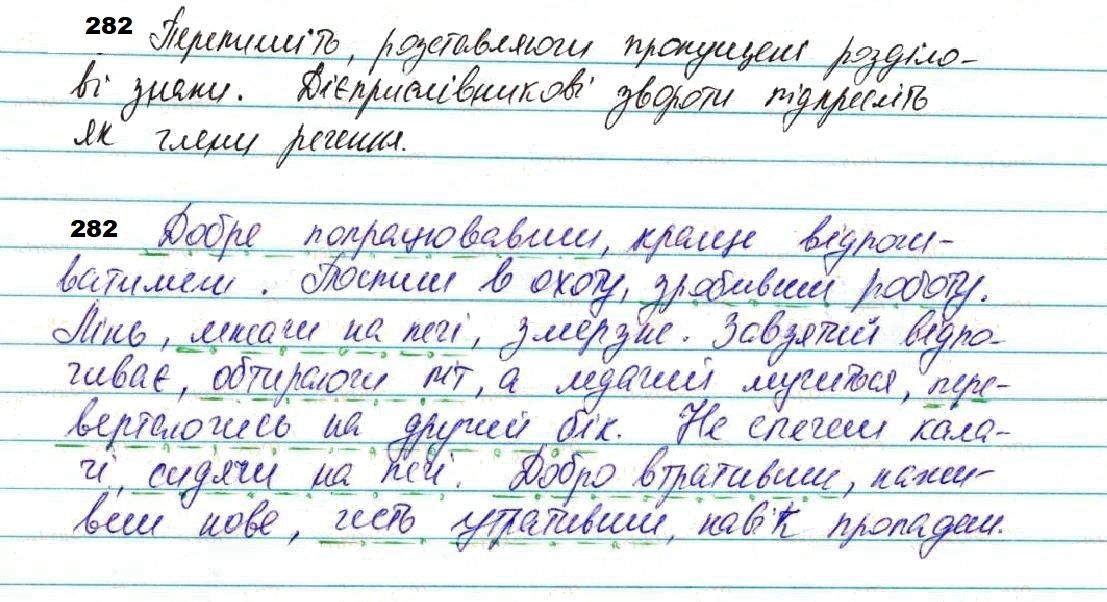 282 Перепишіть, розставляючи пропущені розділо-
ві знаки. Дієприслівникові звороти підкресліть
як члени речення.
282 Добре попрацювавши, краще відпочи-
ватимеш. Поспиш в охоту, зробивши роботу.
Лінь, лежачи на печі, змерзне. Завзятий відпо-
чиває, обтираючи піт, а ледачий мучиться, пере-
вертаючись на другий бік. Не спечеш кала-
чі, сидячи на печі. Добро втративши, нажи-
веш нове, честь утративши, навік пропадеш.